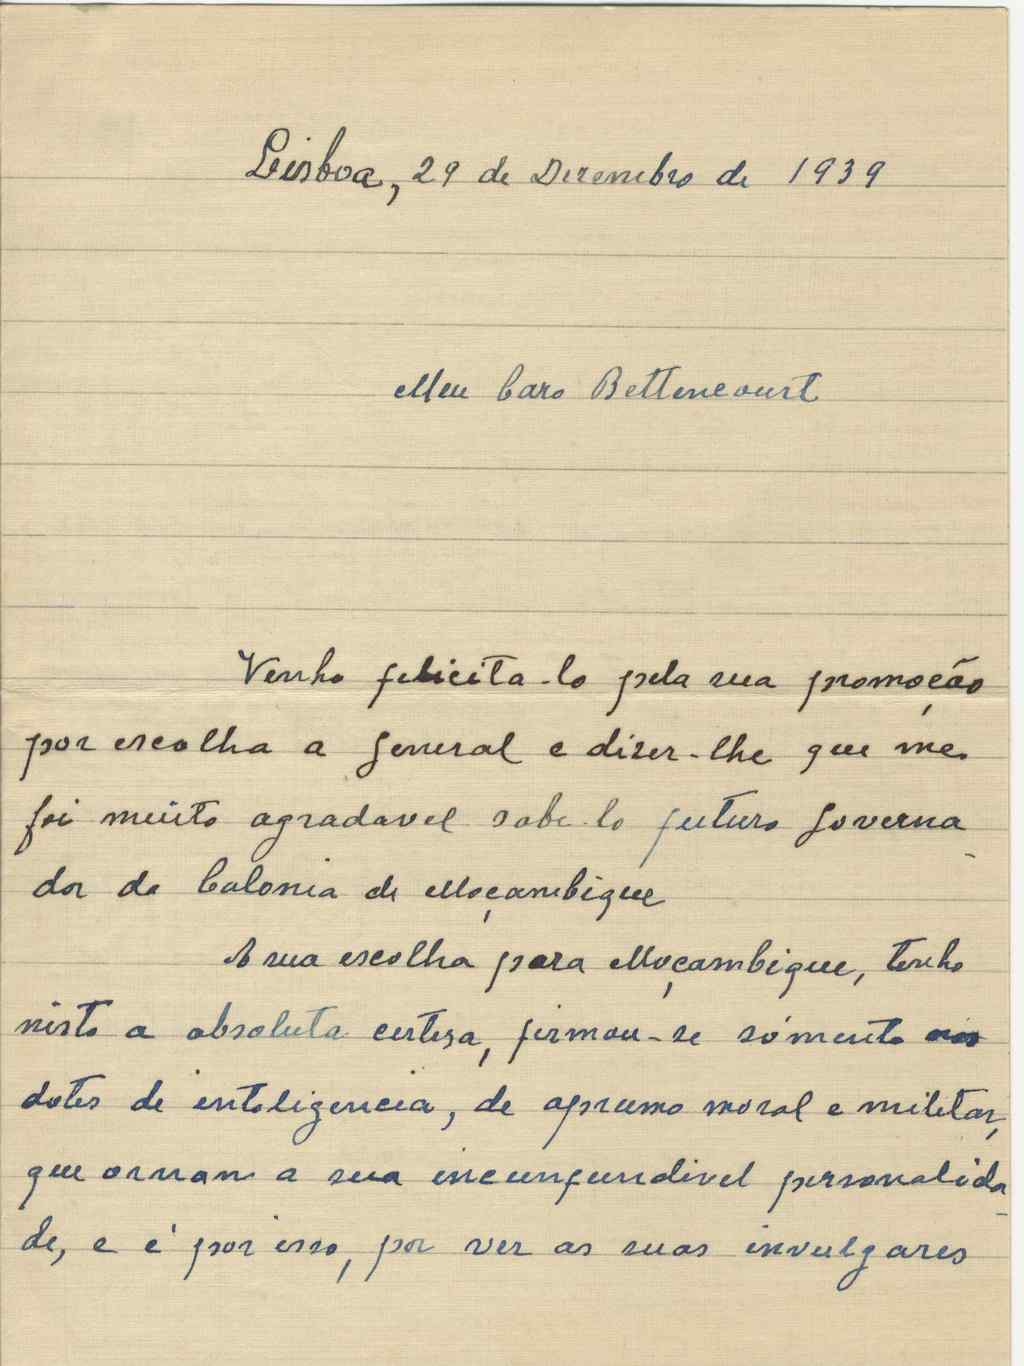 Lisboa, 29 de Dezembro de 1939
Meu Caro Bettencourt
Venho felicita-lo pela sua promoção
por escolha a General e dizer-lhe que me
foi muito agradavel sabe-lo futuro Governa
dor da Colonia de Moçambique
A sua escolha para Moçambique, tenho
nisto a absoluta certesa, firmou-se sómente nos
dotes de inteligencia, de aprumo moral e militar,
que ornam a sua inconfundivel personalida-
de, e é por isso, por ver as suas invulgares